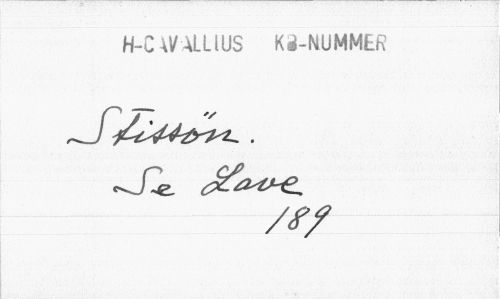 H-CAVALLIUS KB-NUMMER
Stissön.
Se Lave
189